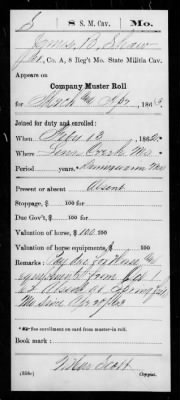 S | 8 S. M. Cav. | Mo.
James B. Shaw
Co. A, 8 Reg't Mo. State Militia Cav.
Appears on
Company Muster Roll
for Mch & Apr, 1863.
Joined for duty and enrolled:
When Feby 13, 1862.
Where Linn Creek Mo
Period years.
Present or absent Absent
Stoppage, $ 100 for
Due Gov't, $ 100 for
Valuation of horse, $ 100.
Valuation of horse equipments, $ 100
Remarks: Pay due for Horse &
equipments from Oct 1
62 Absent at Springfield
Mo Since Apr 20/63
*See enrollment card from master-in roll.
Book mark:
Scott
(358c) Copyist.